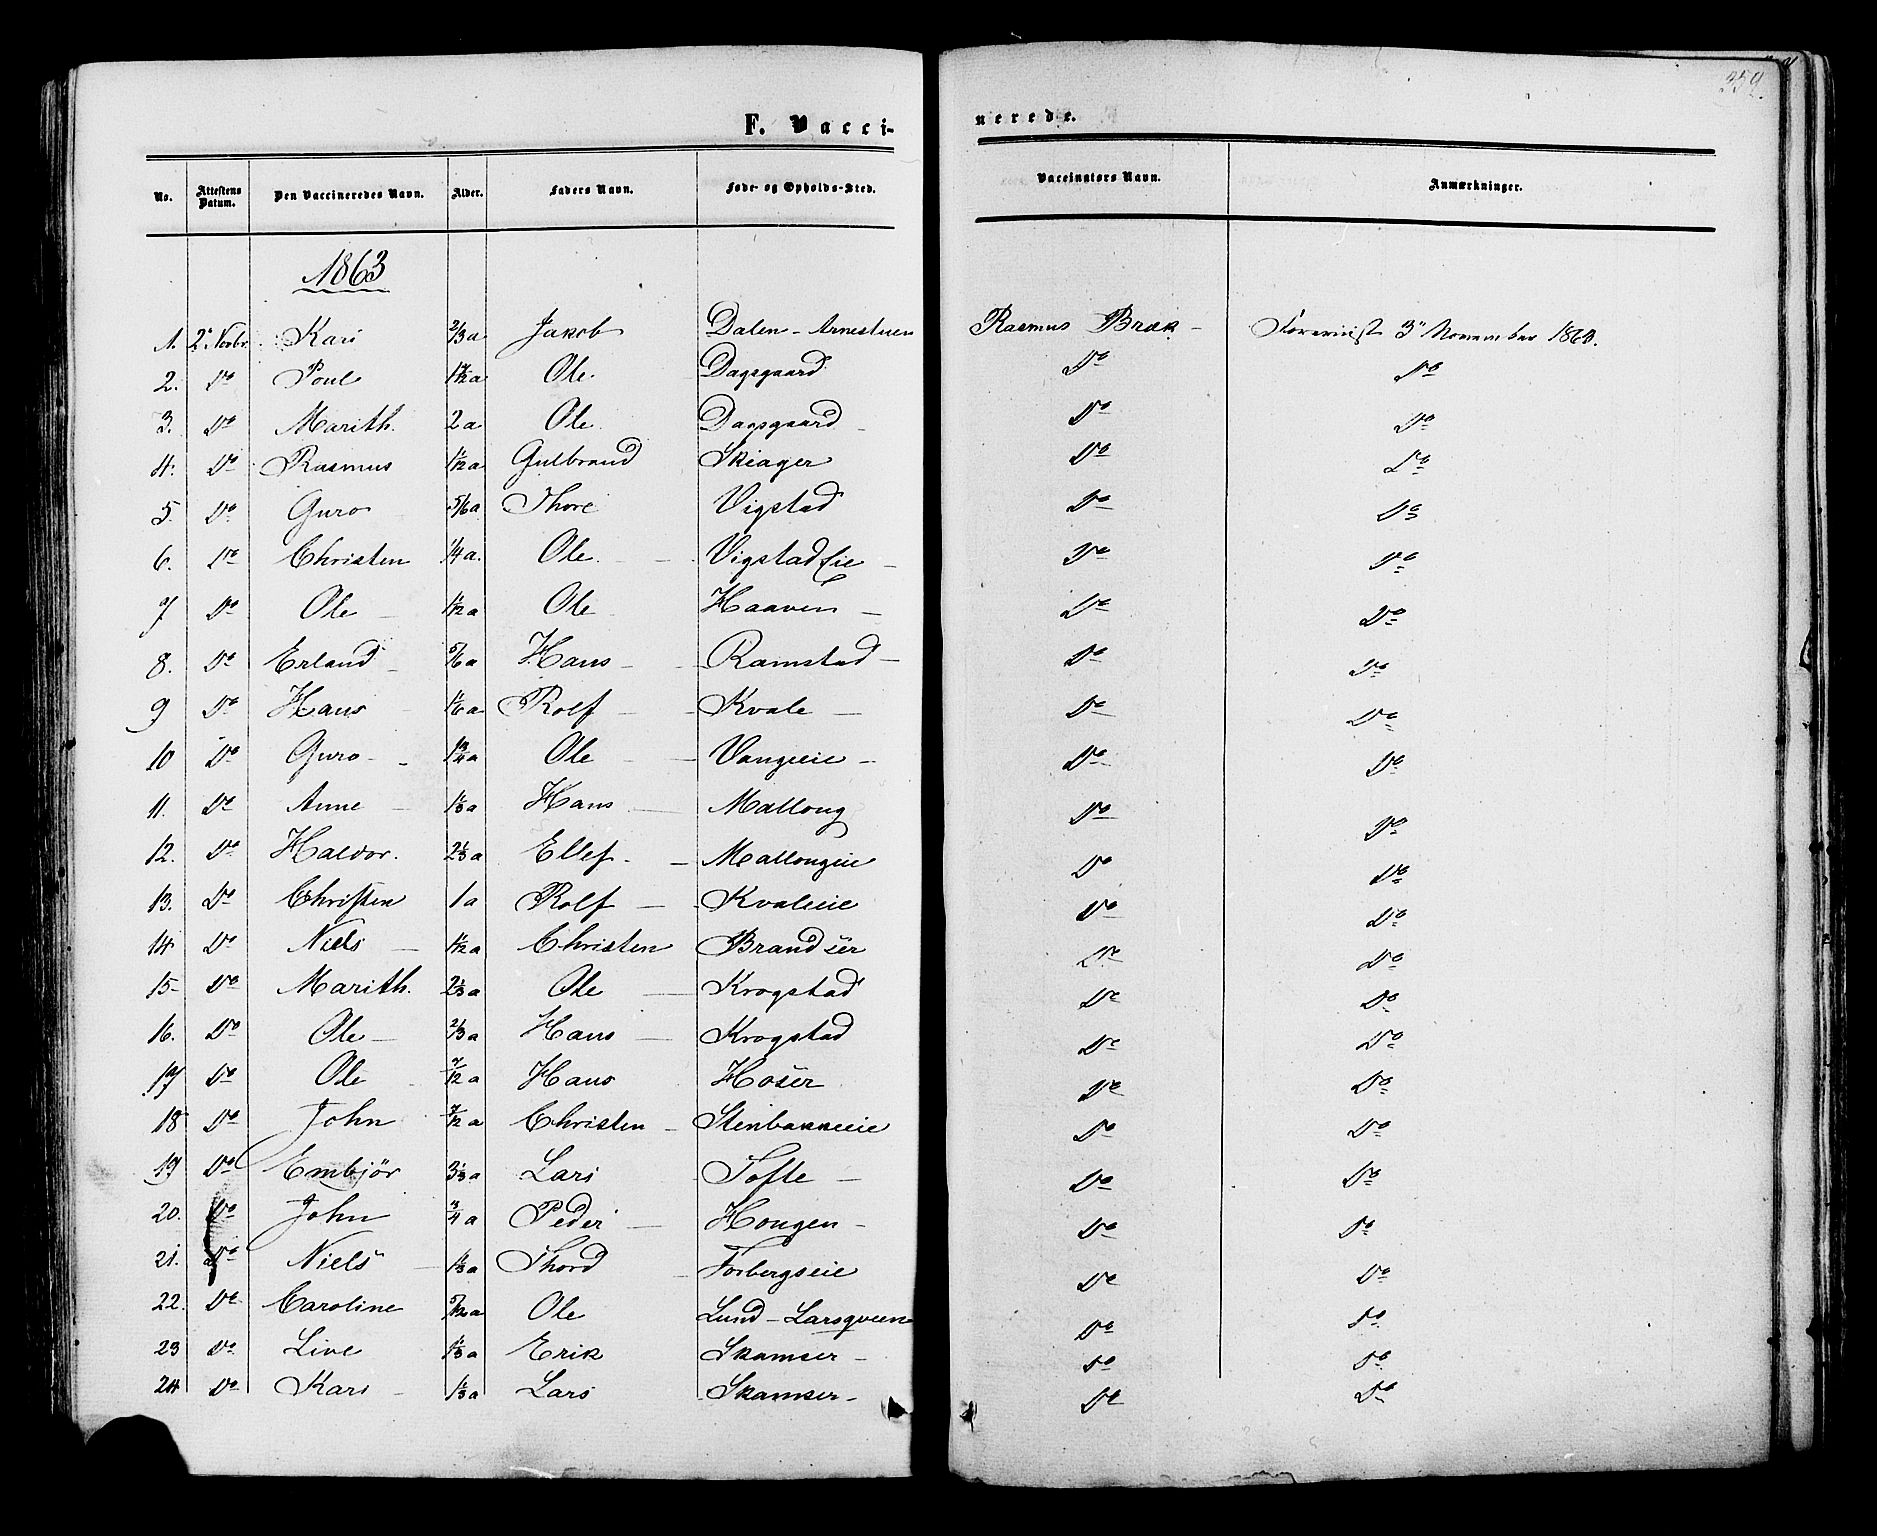 359.
F. Vacci-
nerede.
No. Attestens Datum. Den Vaccineredes Navn. Alder. Faders Navn. Føde- og Opholds-Sted. Vaccinatørs Navn. Anmærkninger.
1863
1. 2' Novbr. Kari 2/3 a Jakob Dalen - Arnestuen Rasmus Bræk - Forevist 3" November 1863.
2. Do Poul 1 1/2 a Ole. Dagsgaard Do Do
3. Do Marith. 2 a Ole Dagsgaard - Do Do
4. Do Rasmus 1 1/2 a Gulbrand Skiager Do Do
5. Do Guro 5/6 a Thore Vigstad Do Do
6. Do Christen 1/4 a. Ole. - Vigstad Eie - Do Do
7 Do Ole - 1 1/2 a Ole Haaven - Do Do
8. Do Erland - 5/6 a Hans - Ramstad - Do Do
9 Do Hans 1 1/6 a Rolf - Kvale - Do Do
10 Do Guro - 1 3/4 a Ole - Vangeie - Do Do
11. Do Anne - 1 1/3 a Hans - Mallong Do Do
12. Do Haldor. 2 1/3 a Ellef. - Mallongeie Do Do
13. Do Christen 1 a Rolf - Kvaleeie Do Do
14. Do Niels - 1 1/2 a Christen Brandsær Do Do
15 Do Marith. 2 1/3 a Ole - Krogstad Do Do
16. Do Ole - 2/3 a Hans - Krogstad Do Do
17 Do Ole 7/12 a Hans Hosær Do Do
18 Do John 7/12 a Christen - Stenbakkeeie Do Do
19 Do Embjör 3 1/3 a Lars Tofte - Do Do
20. Do John 3/4 a Peder - Hougen - Do Do
21. Do Niels - 1 1/3 a Thord - Forbergseie Do Do
22. Do Caroline 5/12 a Ole Lund - Larsqveen Do Do
23 Do Live 1 1/3 a Erik Skamser - Do Do
24 Do Kari - 1 1/3 a Lars Skamser - Do Do